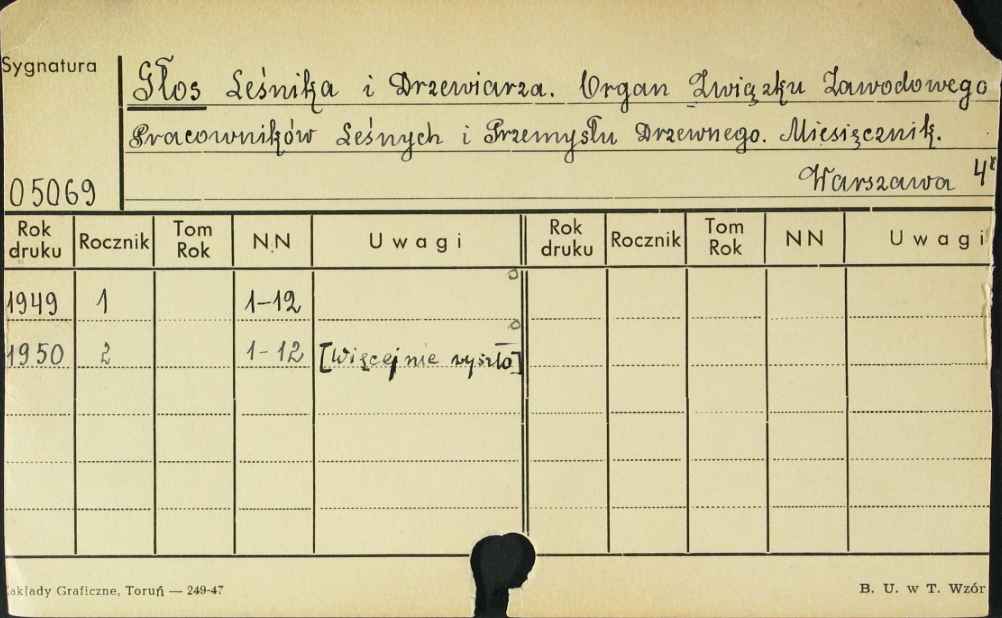 Sygnatura
Głos Leśnika i Drzewiarza. Organ Związku Zawodowego
Pracowników Leśnych i Przemysłu Drzewnego. Miesięcznik.
05069
Warszawa 4º
Rok druku Rocznik Tom Rok NN Uwagi Rok druku Rocznik Tom Rok NN Uwagi
1949 1 1-12
1950 2 1-12 [Więcej nie wyszło]
Zakłady Graficzne, Toruń — 249-47
B. U. w T. Wzór